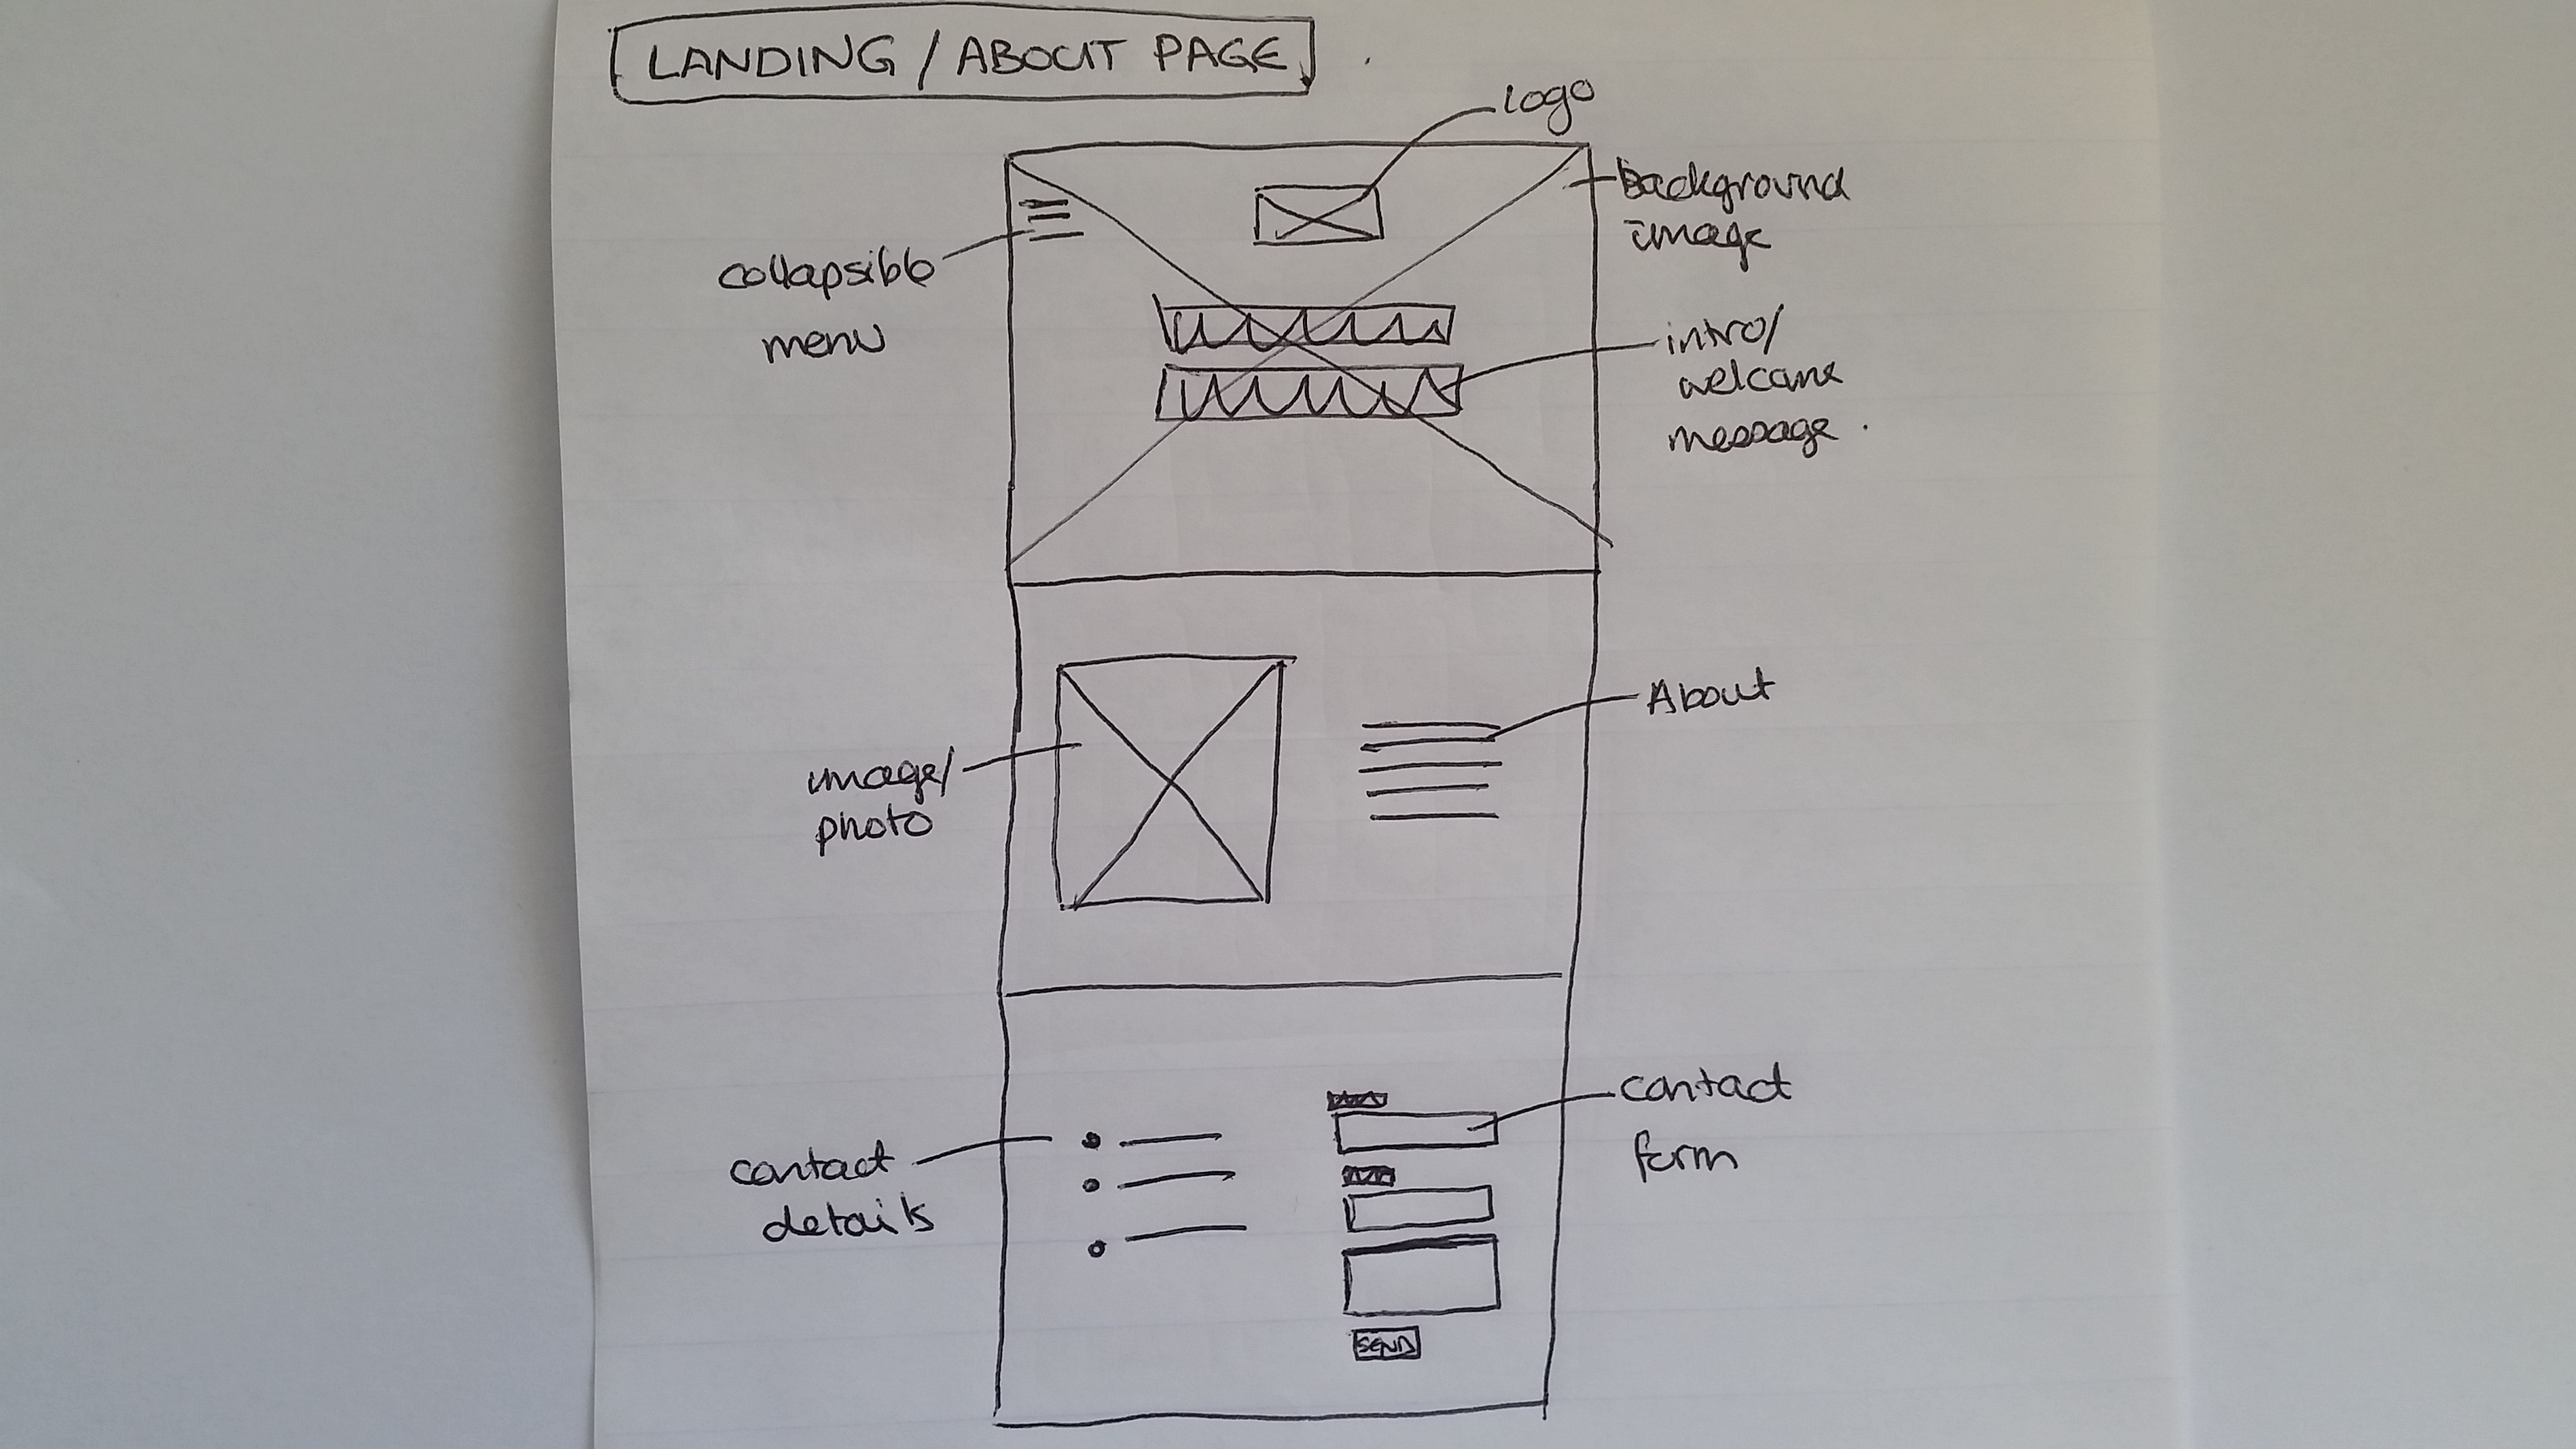 LANDING / ABOUT PAGE
logo
Background
image
collapsible
menu
intro/
welcome
message.
About
image/
photo
contact
form
contact
details
SEND